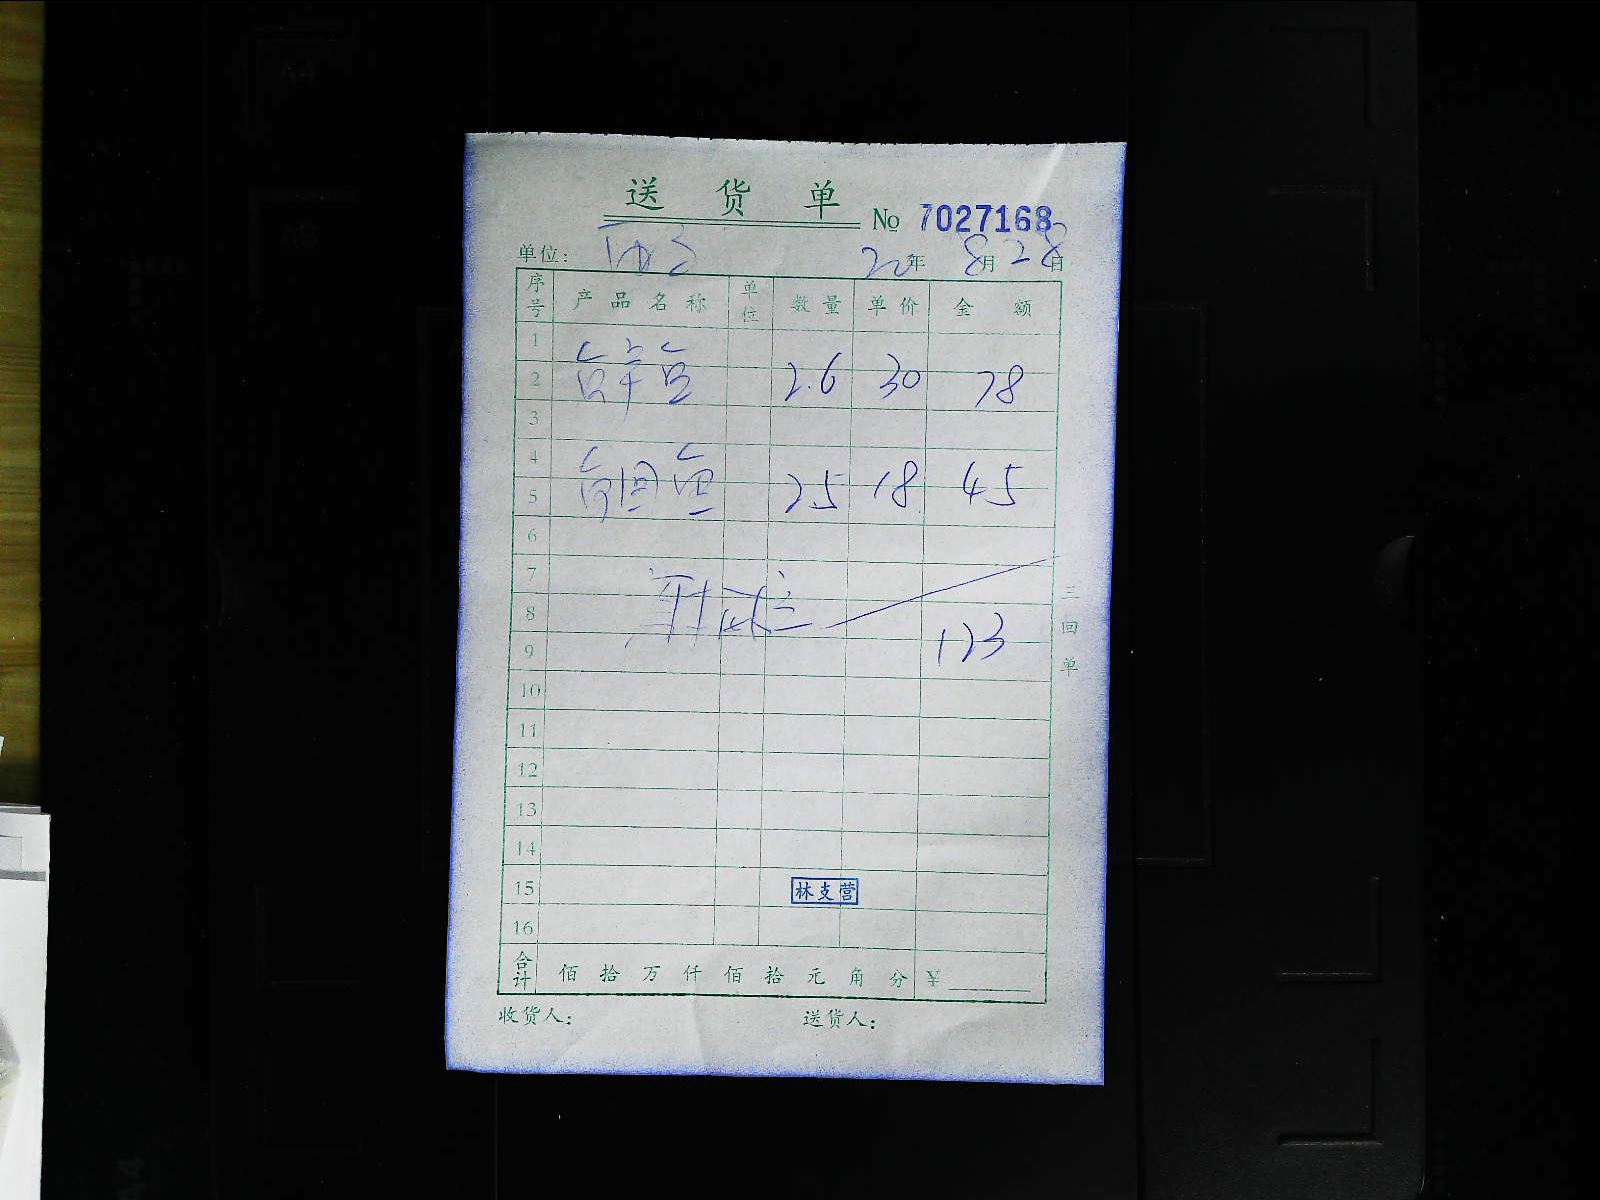 送货单 № 7027168
单位: 20年 8月 28日
序号 产品名称 单位 数量 单价 金额
1
2 2.6 30 78
3
4
5 2.5 18 45
6
7
8
9 123
10
11
12
13
14
15 林支营
16
合计 佰 拾 万 仟 佰 拾 元 角 分 ¥
收货人: 送货人:
三回单